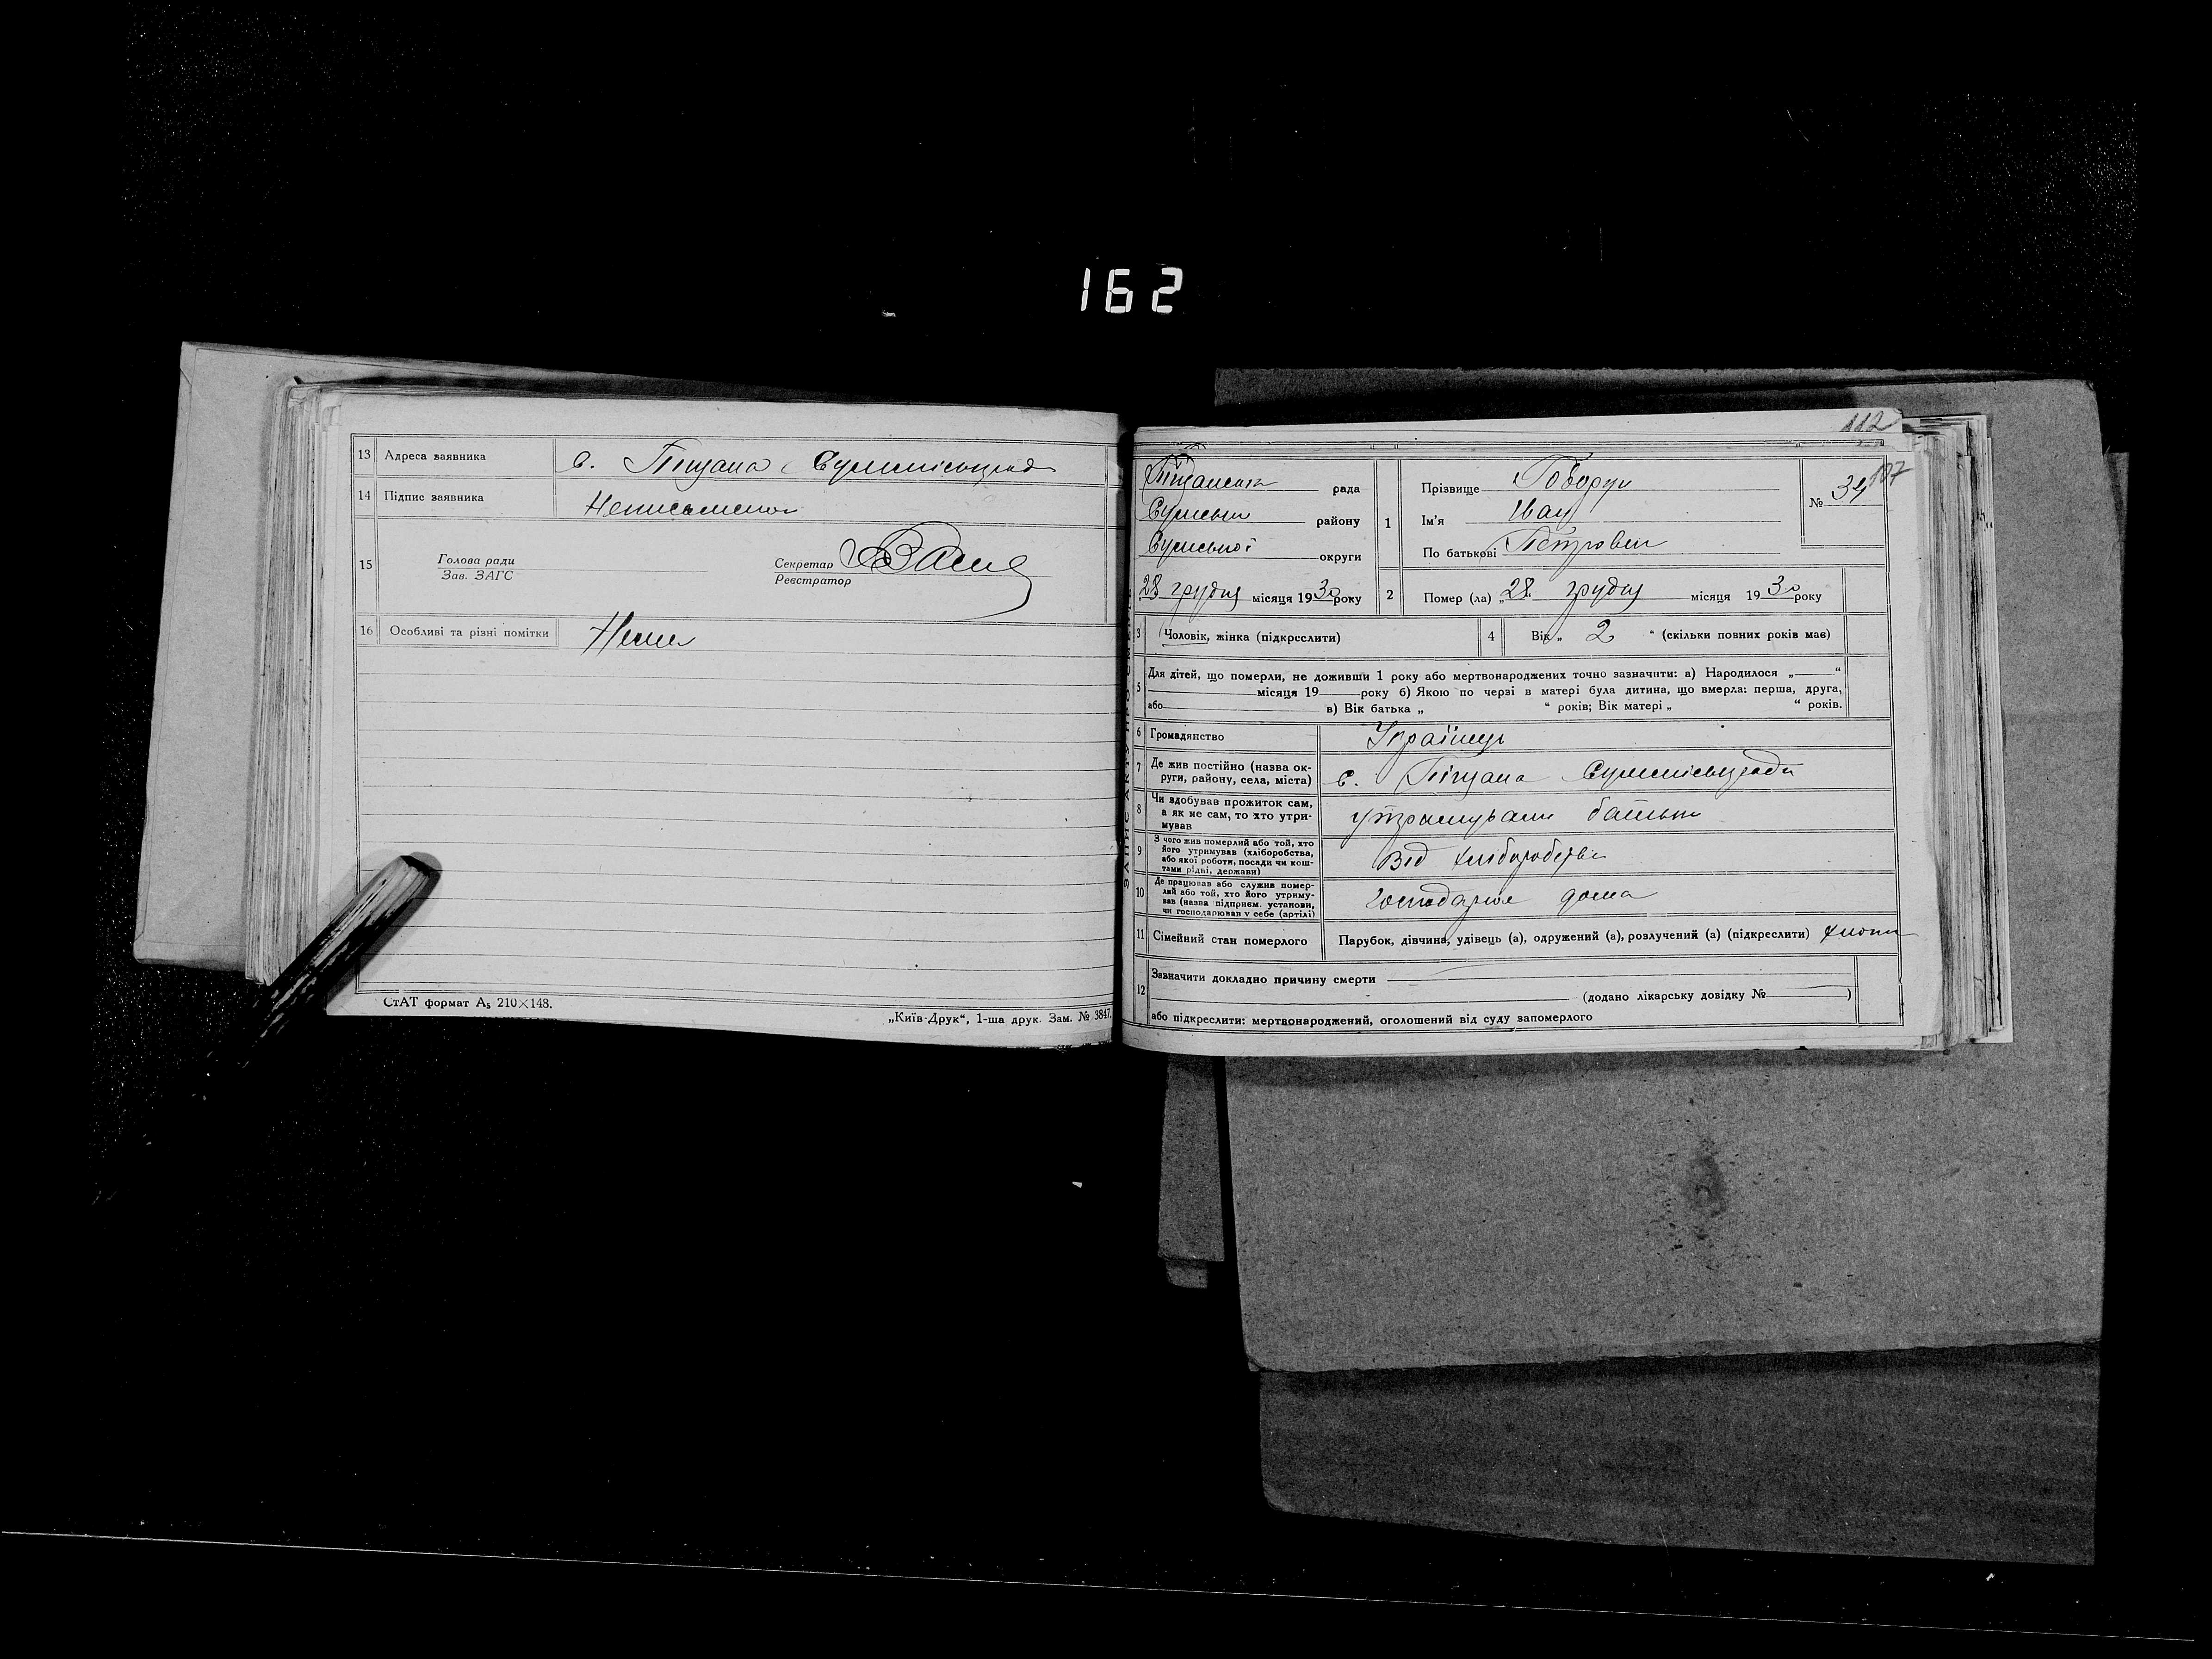 162
13 Адреса заявника с. Піщана Сумміськради
14 Підпис заявника Неписьменна
15 Голова ради
Зав. ЗАГС
Секретар
Реєстратор
16 Особливі та різні помітки Нема
СтАТ формат А5 210×148.
„Київ-Друк“, 1-ша друк. Зам. № 3847.
112
107
Піщанська рада
Сумськ району
Сумської округи
28 грудня місяця 1930 року
1 Прізвище Говорун
Ім'я Іван
По батькові Петрович
№ 39
2 Помер (ла) „28 грудня місяця 1930 року
3 Чоловік, жінка (підкреслити)
4 Вік „ 2 “ (скільки повних років має)
5 Для дітей, що померли, не доживши 1 року або мертвонароджених точно зазначити: а) Народилося „ “
місяця 19 року б) Якою по черзі в матері була дитина, що вмерла: перша, друга,
або в) Вік батька „ “ років; Вік матері „ “ років.
6 Громадянство Українець
7 Де жив постійно (назва ок-
руги, району, села, міста) с. Піщана Сумміськради
8 Чи здобував прожиток сам,
а як не сам, то хто утри-
мував утримували батьки
9 З чого жив померлий або той, хто
його утримував (хліборобства,
або якої роботи, посади чи кош-
тами рідні, держави) Від хліборобства
10 Де працював або служив помер-
лий або той, хто його утриму-
вав (назва підприєм. установи,
чи господарював у себе (артілі) дома
11 Сімейний стан померлого Парубок, дівчина, удівець (а), одружений (а), розлучений (а) (підкреслити)
12 Зазначити докладно причину смерти
(додано лікарську довідку № )
або підкреслити: мертвонароджений, оголошений від суду запомерлого